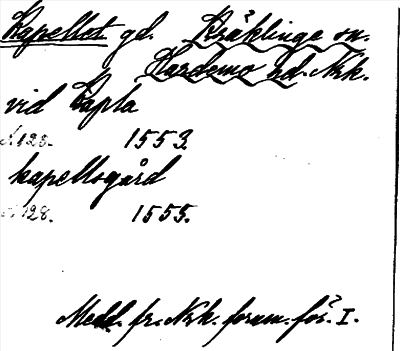 Kapellet gd. Kräklinge sn.
Hardemo hd. Nrk.
vid Capla
s. 128. 1553.
kapellsgård
s. 128. 1555.
Medd. fr. Nrk. fornm. för. I.